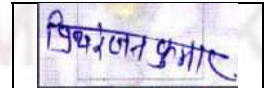 प्रियरंजन कुमार